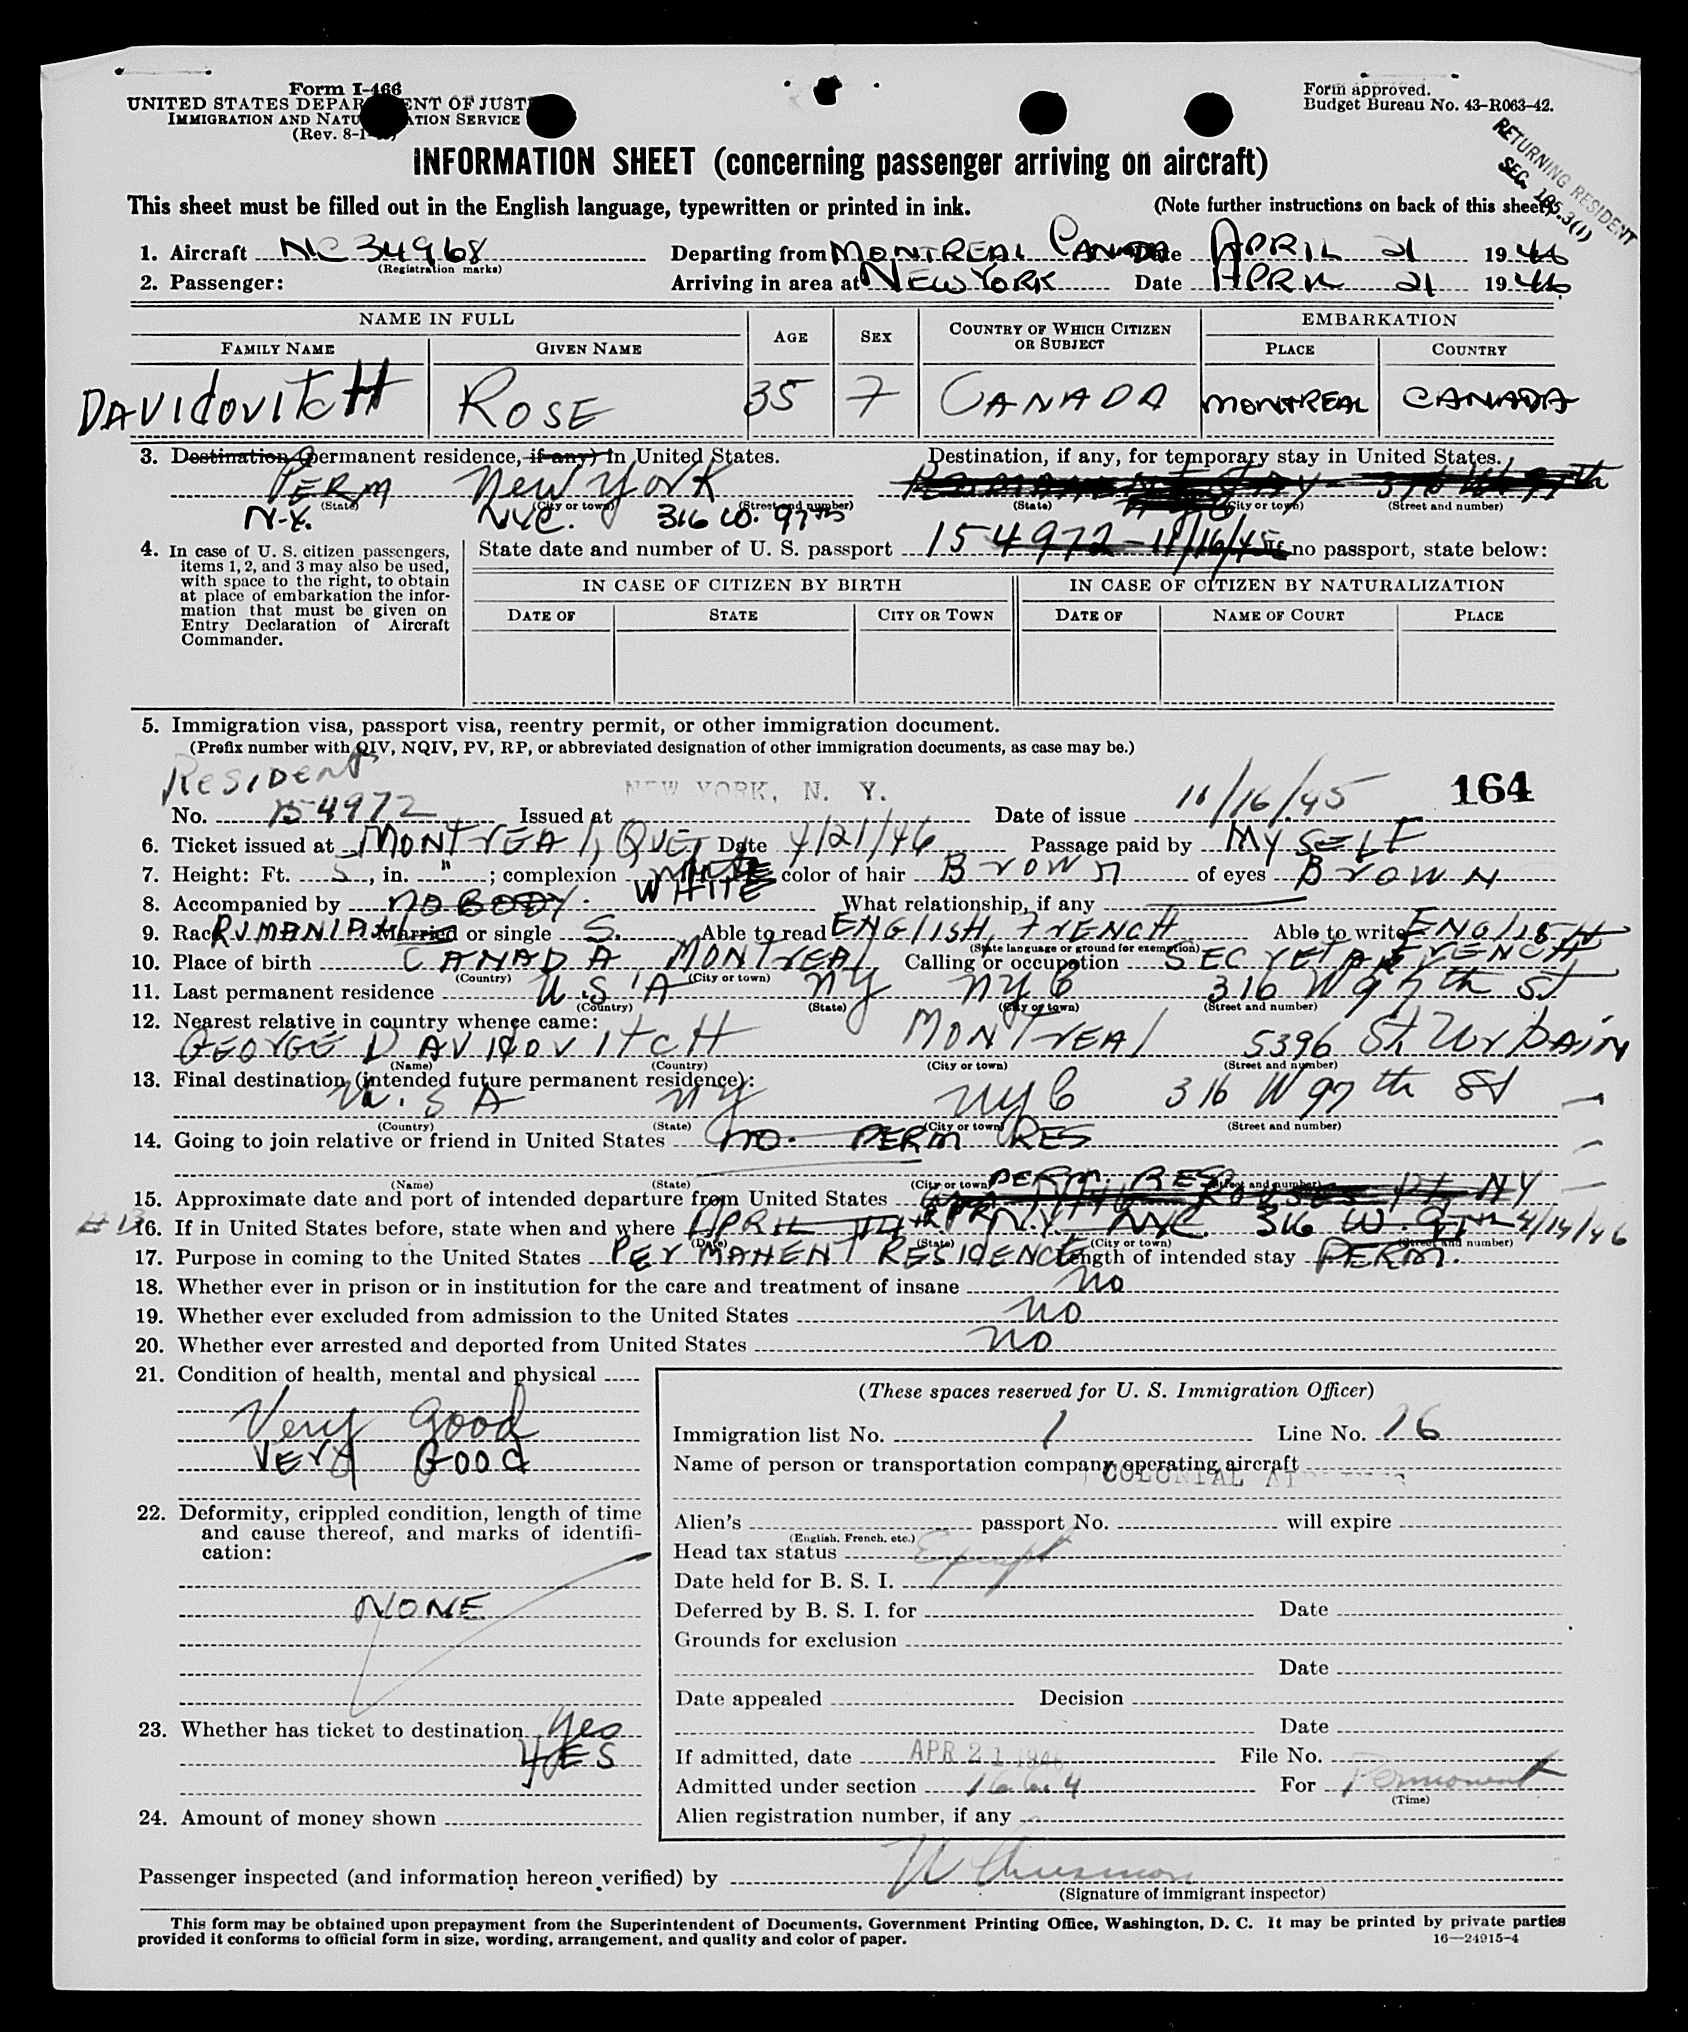 Form I-466
UNITED STATES DEPARTMENT OF JUSTICE
IMMIGRATION AND NATURALIZATION SERVICE
(Rev. 8-1-
Form approved.
Budget Bureau No. 43-R063-42.
RETURNING RESIDENT
SEC. 165.3(1)
INFORMATION SHEET (concerning passenger arriving on aircraft)
This sheet must be filled out in the English language, typewritten or printed in ink. (Note further instructions on back of this sheet)
1. Aircraft NC 34968 Departing from MONTREAL CANADA Date APRIL 21 1946
(Registration marks)
2. Passenger: Arriving in area at NEW YORK Date APRIL 21 1946.
NAME IN FULL AGE SEX COUNTRY OF WHICH CITIZEN OR SUBJECT EMBARKATION
FAMILY NAME GIVEN NAME PLACE COUNTRY
DAVIdOVITCH ROSE 35 F CANADA MONTREAL CANADA
3. Destination (permanent residence, if any) in United States. Destination, if any, for temporary stay in United States.
PERM New York 316 W 97th
(State) (City or town) (Street and number) (State) (City or town) (Street and number)
N.Y. NYC. 316 W. 97th NYC
4. In case of U. S. citizen passengers, items 1, 2, and 3 may also be used, with space to the right, to obtain at place of embarkation the information that must be given on Entry Declaration of Aircraft Commander.
State date and number of U. S. passport 154972-11/16/45 If no passport, state below:
IN CASE OF CITIZEN BY BIRTH IN CASE OF CITIZEN BY NATURALIZATION
DATE OF STATE CITY OR TOWN DATE OF NAME OF COURT PLACE
5. Immigration visa, passport visa, reentry permit, or other immigration document.
(Prefix number with QIV, NQIV, PV, RP, or abbreviated designation of other immigration documents, as case may be.)
RESIDENTS
No. 154972 Issued at NEW YORK, N. Y. Date of issue 11/16/45 164
6. Ticket issued at MONTreAl, QUE, Date 4/21/46 Passage paid by MY SELF
7. Height: Ft. 5, in. "; complexion WHITE color of hair Brown of eyes Brown
8. Accompanied by NOBODY. What relationship, if any
9. Race RUMANIAN Married or single S. Able to read ENGlISH, FRENCH Able to write ENGlISH FRENCH
(State language or ground for exemption)
10. Place of birth CANADA, MONTreAl Calling or occupation SECreTAry
(Country) (City or town)
11. Last permanent residence U.S.A NY NYC 316 W 97th St
(Country) (State) (City or town) (Street and number)
12. Nearest relative in country whence came:
GEORGE DAVIdOVITCH MONTreAl 5396 St Urbain
(Name) (Country) (City or town) (Street and number)
13. Final destination (intended future permanent residence):
U.S A NY NYC 316 W 97th St
(Country) (State) (City or town) (Street and number)
14. Going to join relative or friend in United States NO. PERM RES.
(Name) (State) (City or town) (Street and number)
PERM. RES.
15. Approximate date and port of intended departure from United States Rouses Pt NY
16. If in United States before, state when and where APRIL 14 N.Y. NYC. 316 W. 97th 4/14/46
(Date) (State) (City or town) (Street and number)
17. Purpose in coming to the United States PERMANENT RESIDENCE Length of intended stay PERM.
18. Whether ever in prison or in institution for the care and treatment of insane No
19. Whether ever excluded from admission to the United States No
20. Whether ever arrested and deported from United States No
21. Condition of health, mental and physical
Very good
VERY GOOd
22. Deformity, crippled condition, length of time and cause thereof, and marks of identification:
NONE
23. Whether has ticket to destination Yes
YES
24. Amount of money shown
(These spaces reserved for U. S. Immigration Officer)
Immigration list No. 1 Line No. 16
Name of person or transportation company operating aircraft
COLONIAL AIRLINES
Alien's passport No. will expire
(English, French, etc.)
Head tax status Exempt
Date held for B. S. I.
Deferred by B. S. I. for Date
Grounds for exclusion
Date
Date appealed Decision
Date
If admitted, date APR 21 1946 File No.
Admitted under section For Permanent
(Time)
Alien registration number, if any
Passenger inspected (and information hereon verified) by
(Signature of immigrant inspector)
This form may be obtained upon prepayment from the Superintendent of Documents, Government Printing Office, Washington, D. C. It may be printed by private parties
provided it conforms to official form in size, wording, arrangement, and quality and color of paper. 16—24915-4